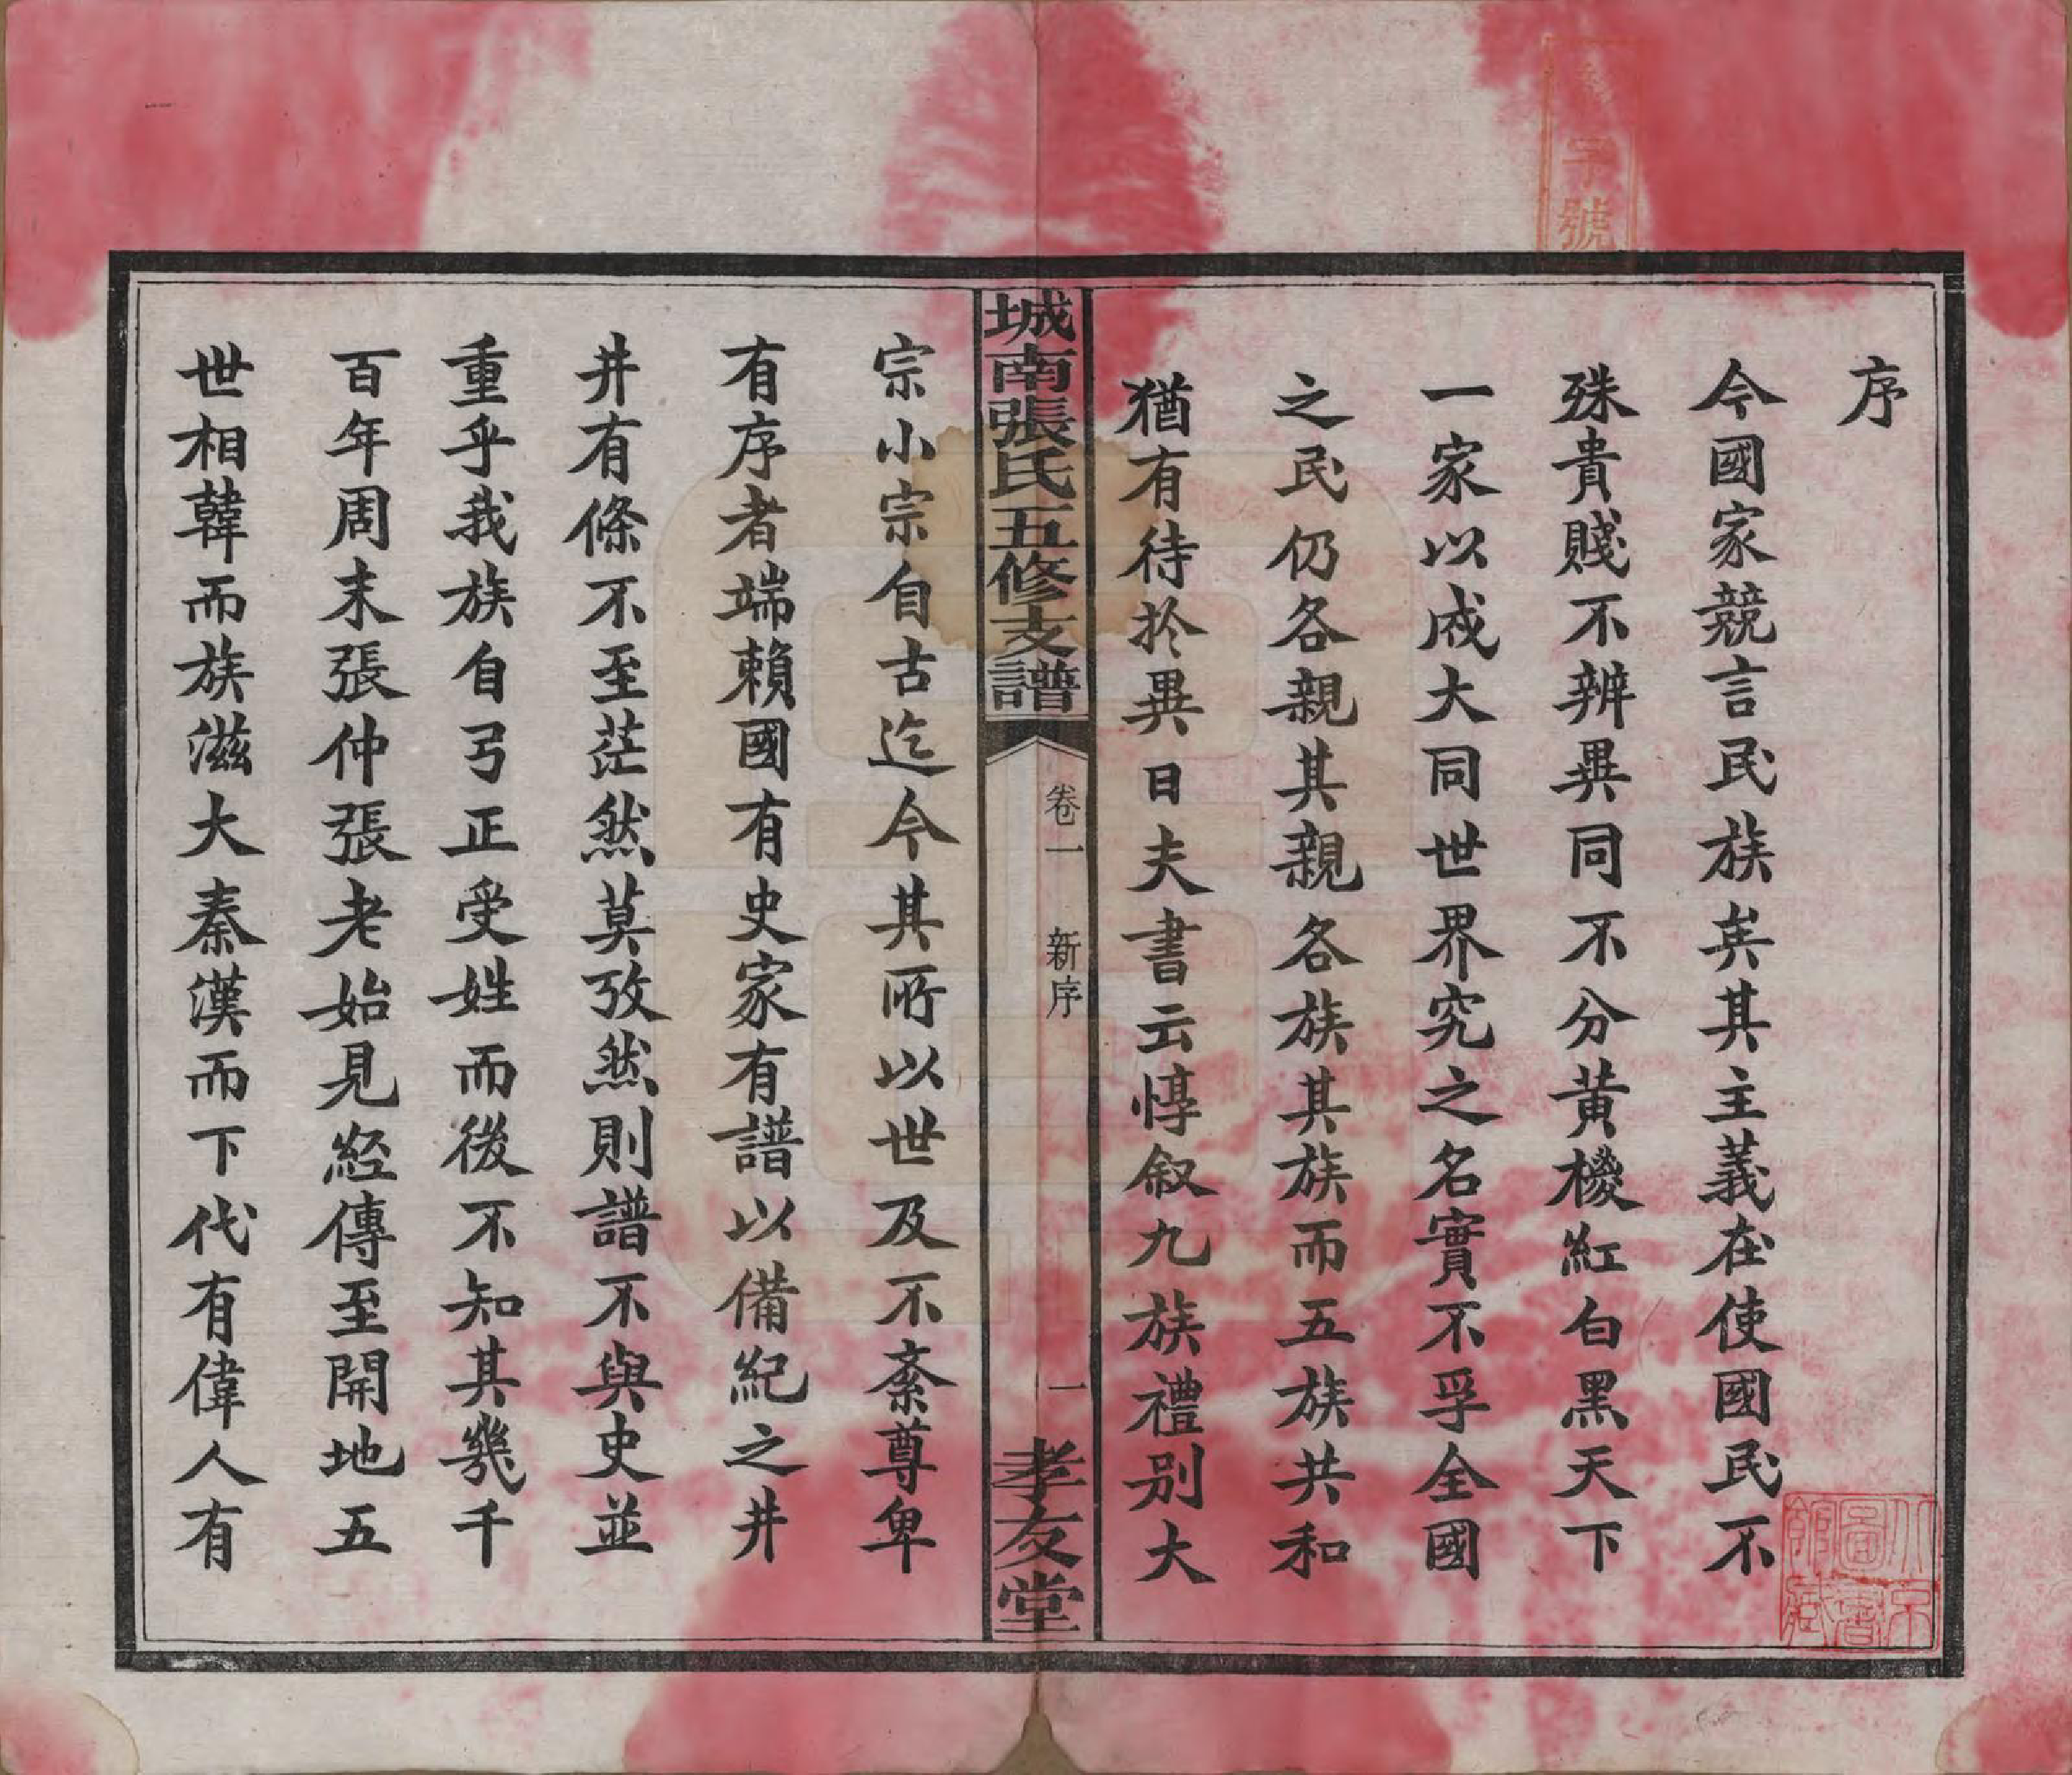 序
今國家競言民族矣其主義在使國民不
殊貴賤不辨異同不分黃椶紅白黑天下
一家以成大同世界究之名實不孚全國
之民仍各親其親各族其族而五族共和
猶有待於異日夫書云惇叙九族禮別大
城南張氏五修支譜
卷一 新序
一
孝友堂
宗小宗自古迄今其所以世及不紊尊卑
有序者端賴國有史家有譜以備紀之井
井有條不至茫然莫攷然則譜不與史並
重乎我族自弓正受姓而後不知其幾千
百年周末張仲張老始見經傳至開地五
世相韓而族滋大秦漢而下代有偉人有
字號